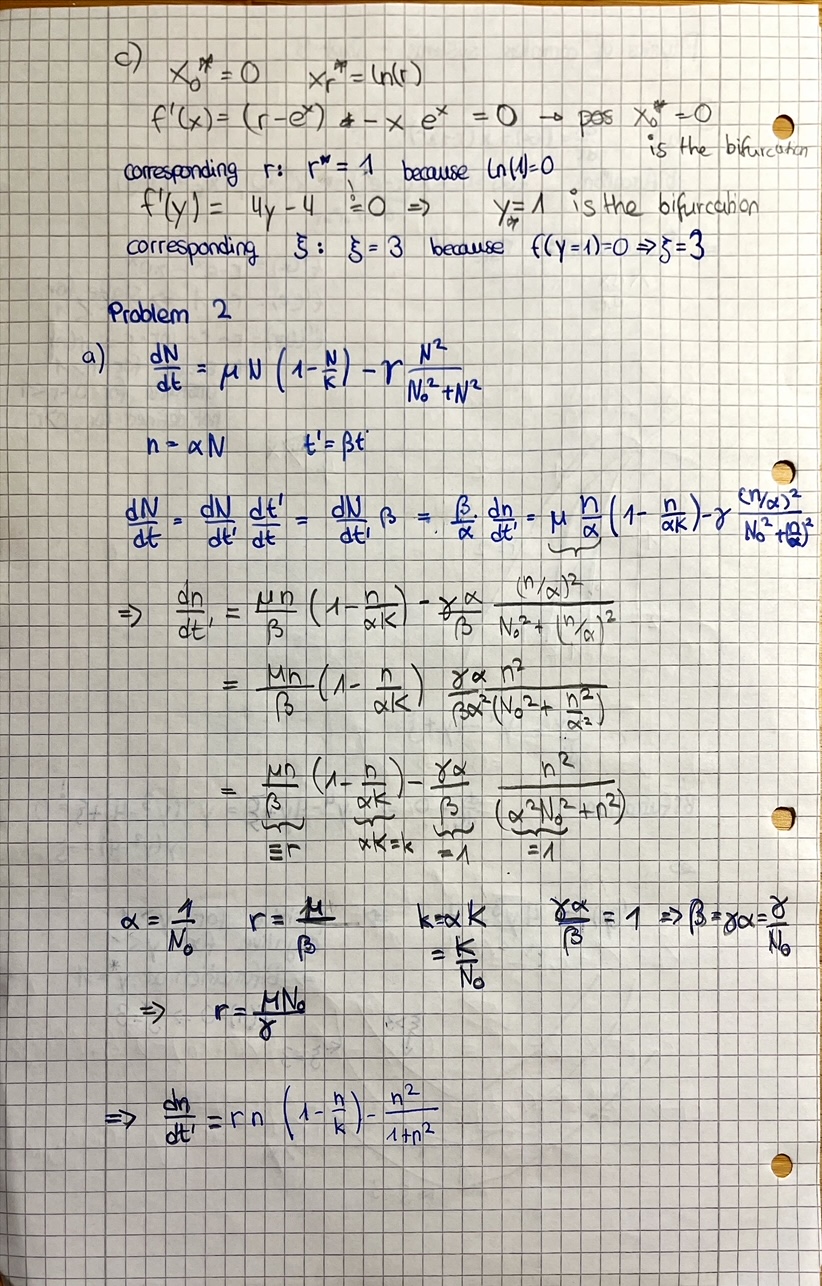 c) x₀* = 0 xᵣ* = ln(r)
f'(x) = (r-eˣ) + - x eˣ = 0 → pos x₀* = 0
is the bifurcation
corresponding r: r* = 1 because ln(1)=0
f'(y) = 4y - 4 != 0 ⇒ y* = 1 is the bifurcation
corresponding ξ: ξ = 3 because f(y=1)=0 ⇒ ξ=3
Problem 2
a) dN/dt = μN (1 - N/K) - γ N²/(N₀²+N²)
n = αN t' = βt
dN/dt = dN/dt' dt'/dt = dN/dt' β = β/α · dn/dt' = μ n/α (1 - n/(αK)) - γ (n/α)²/(N₀²+(n/α)²)
⇒ dn/dt' = μn/β (1 - n/(αK)) - γα/β (n/α)²/(N₀²+(n/α)²)
= μn/β (1 - n/(αK)) γα n²/(βα²(N₀² + n²/α²))
= μn/β (1 - n/(αK)) - γα/β n²/(α²N₀²+n²)
≡r αK=k =1 =1
α = 1/N₀ r = μ/β k=αK γα/β = 1 ⇒ β=γα=γ/N₀
= K/N₀
⇒ r = μN₀/γ
⇒ dn/dt' = rn (1 - n/k) - n²/(1+n²)